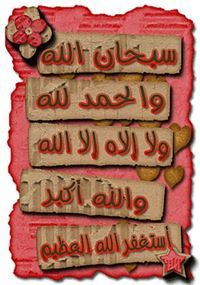 سبحان الله
والحمد لله
ولا إله إلا الله
والله أكبر
أستغفر الله العظيم